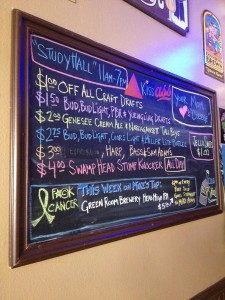 "STUDY HALL" 11AM-7PM
KISS
YOUR MOM
$1.00 OFF ALL CRAFT DRAFTS
$1.50 BUD, BUD LIGHT, PBR & YUENGLING DRAFTS
$2.00 GENESEE CREAM ALE & NARRAGANSETT TALL BOYS
$2.75 BUD, BUD LIGHT, COORS LIGHT & MILLER LITE BOTTLES
$3.00 HARP, BASS & SAM ADAMS
$4.00 SWAMP HEAD STUMP KNOCKER ALL DAY!
JELLO SHOTS
$1.00
CANCER
THIS WEEK ON MIKE'S TAP:
GREEN ROOM BREWERY HEAD HIGH IPA